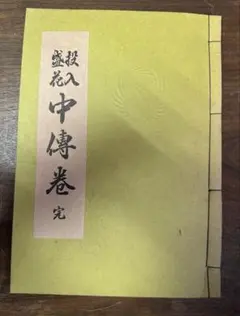 投入
盛花
中傳巻
完